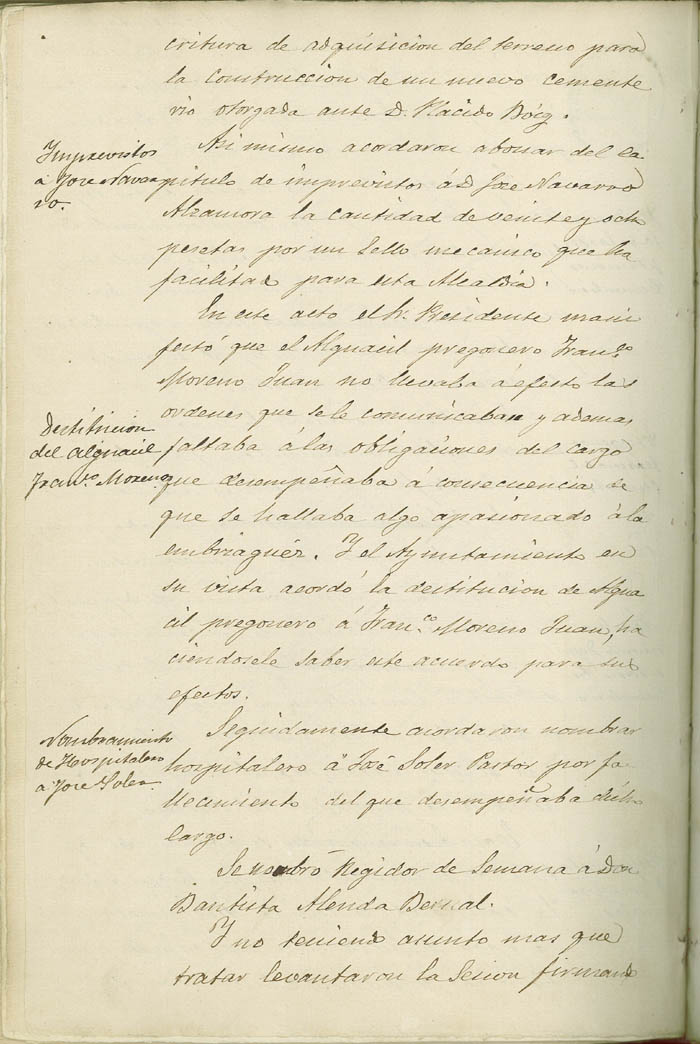 critura de adquisicion del terreno para
la construccion de un nuevo cemente
rio otorgada ante D. Plácido Bóig.
Imprevistos
á Jose Navar
ro.
Asi mismo acordaron abonar del ca
pitulo de imprevistos á D Jose Navarro
Alzamora la cantidad de veinte y ocho
pesetas por un Sello mecanico que ha
facilitado para esta Alcaldia.
En este acto el Sr. Presidente mani
festó que el Alguacil pregonero Fran.co
Moreno Juan no llevaba á efecto las
ordenes que se le comunicaban y ademas
Destitucion
del alguacil
Fran.co Moreno
faltaba á las obligaciones del cargo
que desempeñaba á consecuencia de
que se hallaba algo apasionado á la
embriaguéz. Y el Ayuntamiento en
su vista acordó la destitucion de Algua
cil pregonero á Fran.co Moreno Juan, ha
ciendosele saber este acuerdo para sus
efectos.
Nombramiento
de Hospitalero
a Jose Soler
Seguidamente acordaron nombrar
hospitalero á José Soler Pastor por fa
llecimiento del que desempeñaba dicho
cargo.
Se nombró Regidor de Semana á Don
Bautista Alenda Bernal.
Y no teniendo asunto mas que
tratar levantaron la Sesion firmando